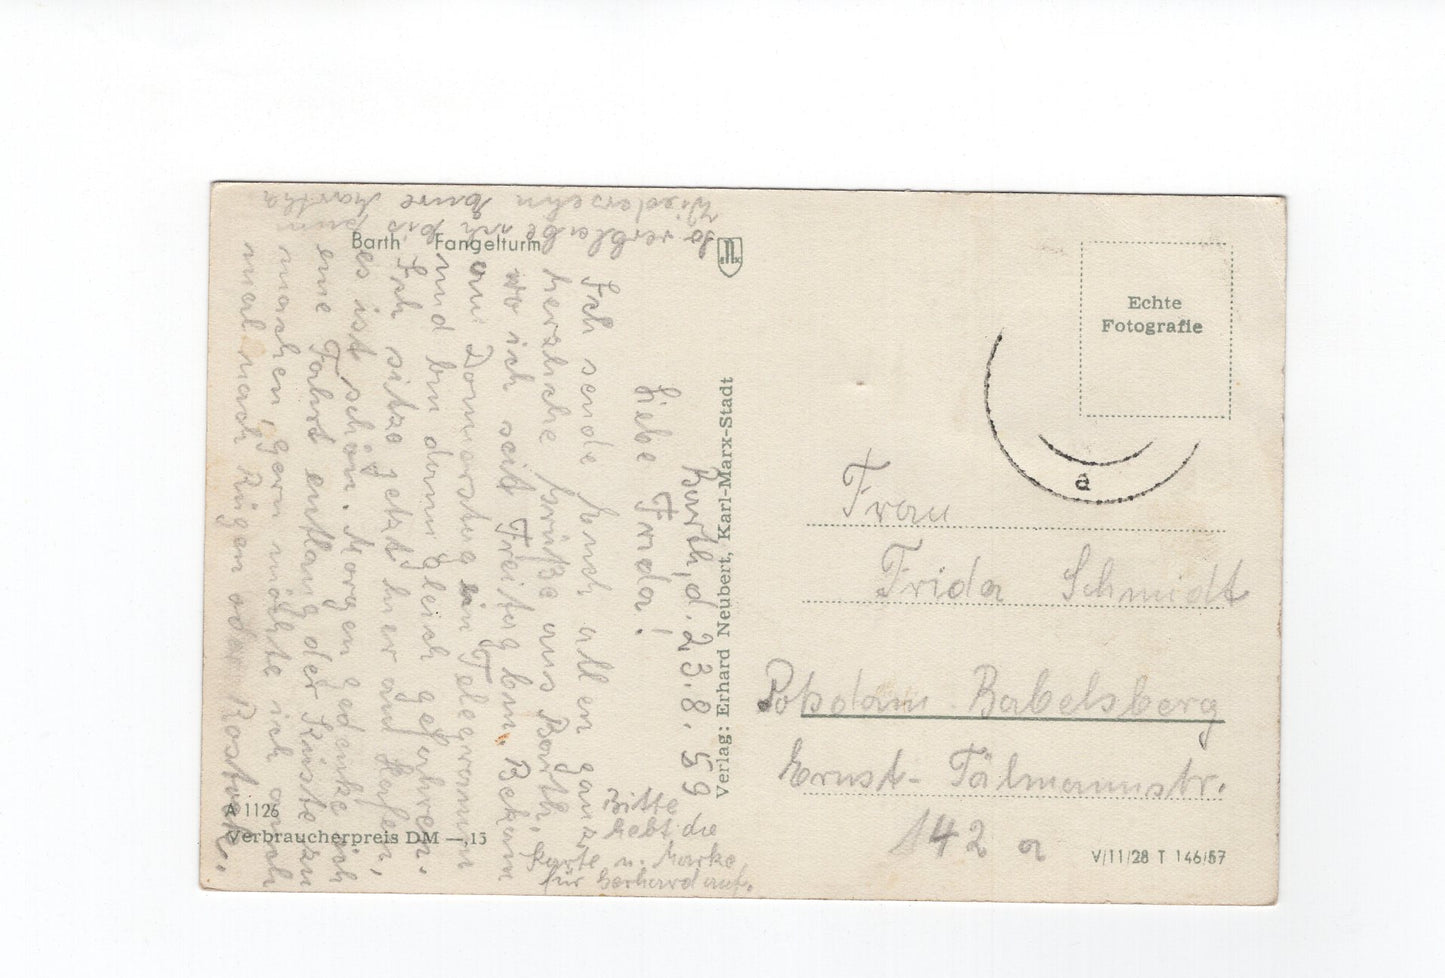 Barth Fangelturm
Barth, d. 23.8.59
Liebe Frida!
Ich sende Euch allen ganz
herzliche Grüße aus Barth,
wo ich seit Freitag bin. Bekam
am Donnerstag ein Telegramm
und bin dann gleich gefahren.
Ich sitze jetzt hier am Hafen,
es ist schön. Morgen gedenke ich
eine Fahrt entlang der Küste zu
machen, gern möchte ich auch
mal nach Rügen oder Rostock.
So verbleibe ich bis zum
Wiedersehn Eure Martha
Bitte
hebt die
Karte u. Marke
für Gerhard auf.
A 1126
Verbraucherpreis DM —,15
Verlag: Erhard Neubert, Karl-Marx-Stadt
Echte
Fotografie
a
Frau
Frida Schmidt
Potsdam-Babelsberg
Ernst-Tälmannstr.
142 a
V/11/28 T 146/57